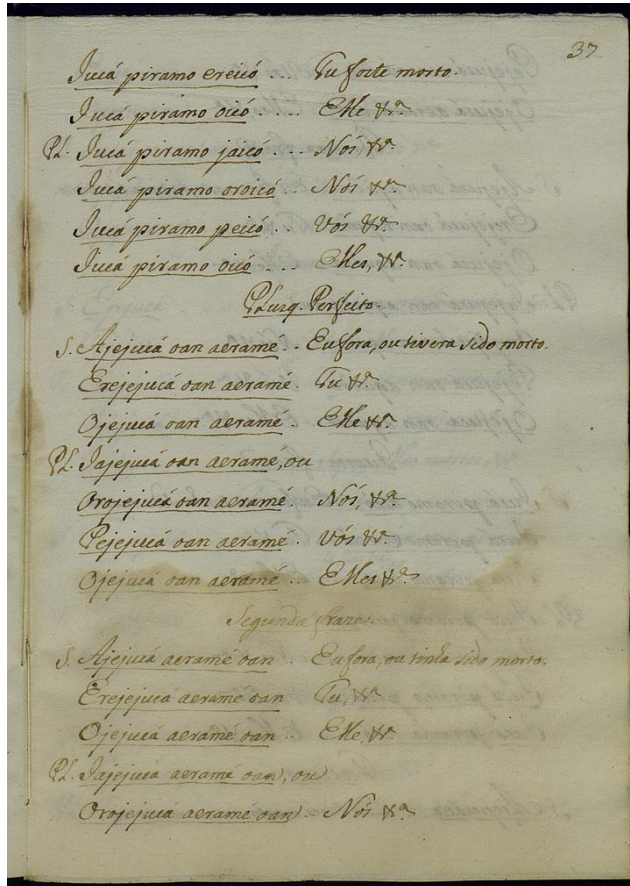 37
Jucá piramo ereicó .... Tu foste morto.
Jucá piramo oicó .... Elle &ra.
Pl. Jucá piramo jaicó .... Nós, &ra.
Jucá piramo oroicó .. Nós &ra.
Jucá piramo peicó .. Vós &ra.
Jucá piramo oicó .... Elles, &ra.
Plusq. Perfeito
S. Ajejucá oan aeramé .. Eu fora, ou tivera sido morto.
Erejejucá oan aeramé . Tu &ra.
Ojejucá oan aeramé .. Elle &ra.
Pl. Jajejucá oan aeramé, ou
Orojejucá oan aeramé . Nós, &ra.
Pejejucá oan aeramé . Vós &ra.
Ojejucá oan aeramé .. Elles &ra.
Segunda fraze.
S. Ajejucá aeramé oan .. Eu fora, ou tinha sido morto.
Erejejucá aeramé oan Tu, &ra.
Ojejucá aeramé oan .. Elle, &ra.
Pl. Jajejucá aeramé oan, ou
Orojejucá aeramé oan . Nós &ra.